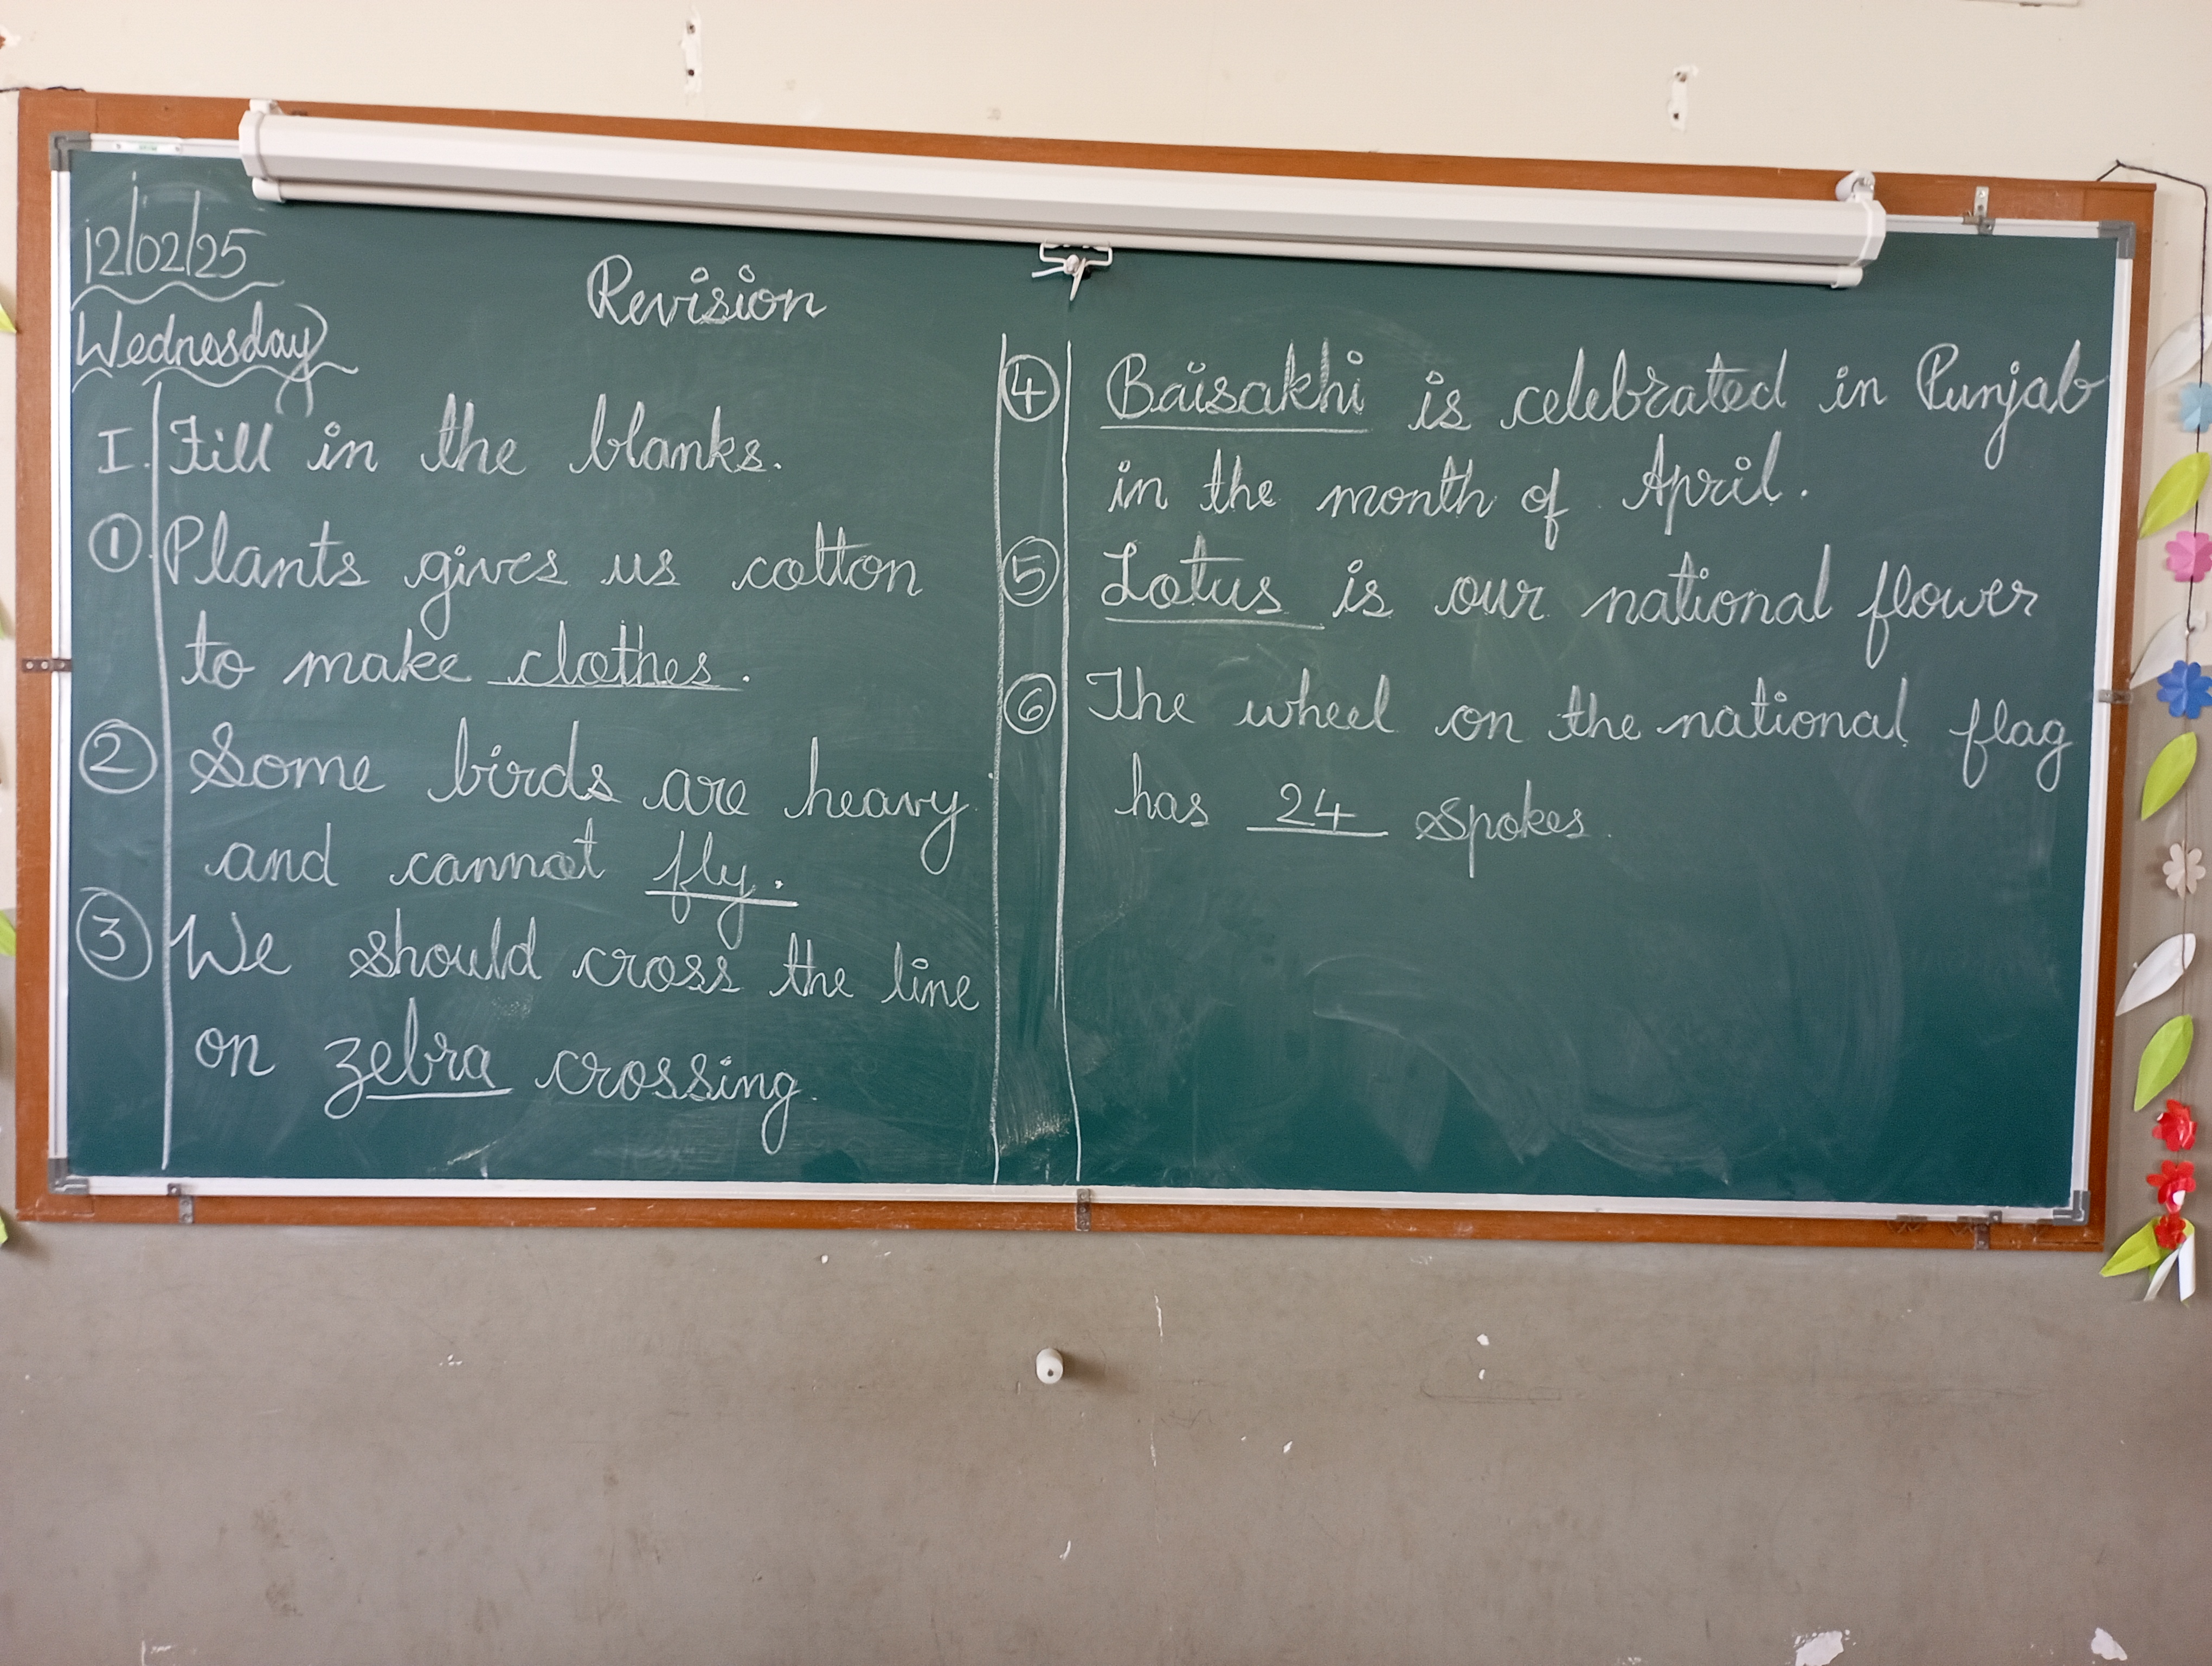 12/02/25
Wednesday
Revision
I. Fill in the blanks.
1 Plants gives us cotton
to make clothes.
2 Some birds are heavy
and cannot fly.
3 We should cross the line
on zebra crossing.
4 Baisakhi is celebrated in Punjab
in the month of April.
5 Lotus is our national flower
6 The wheel on the national flag
has 24 spokes.